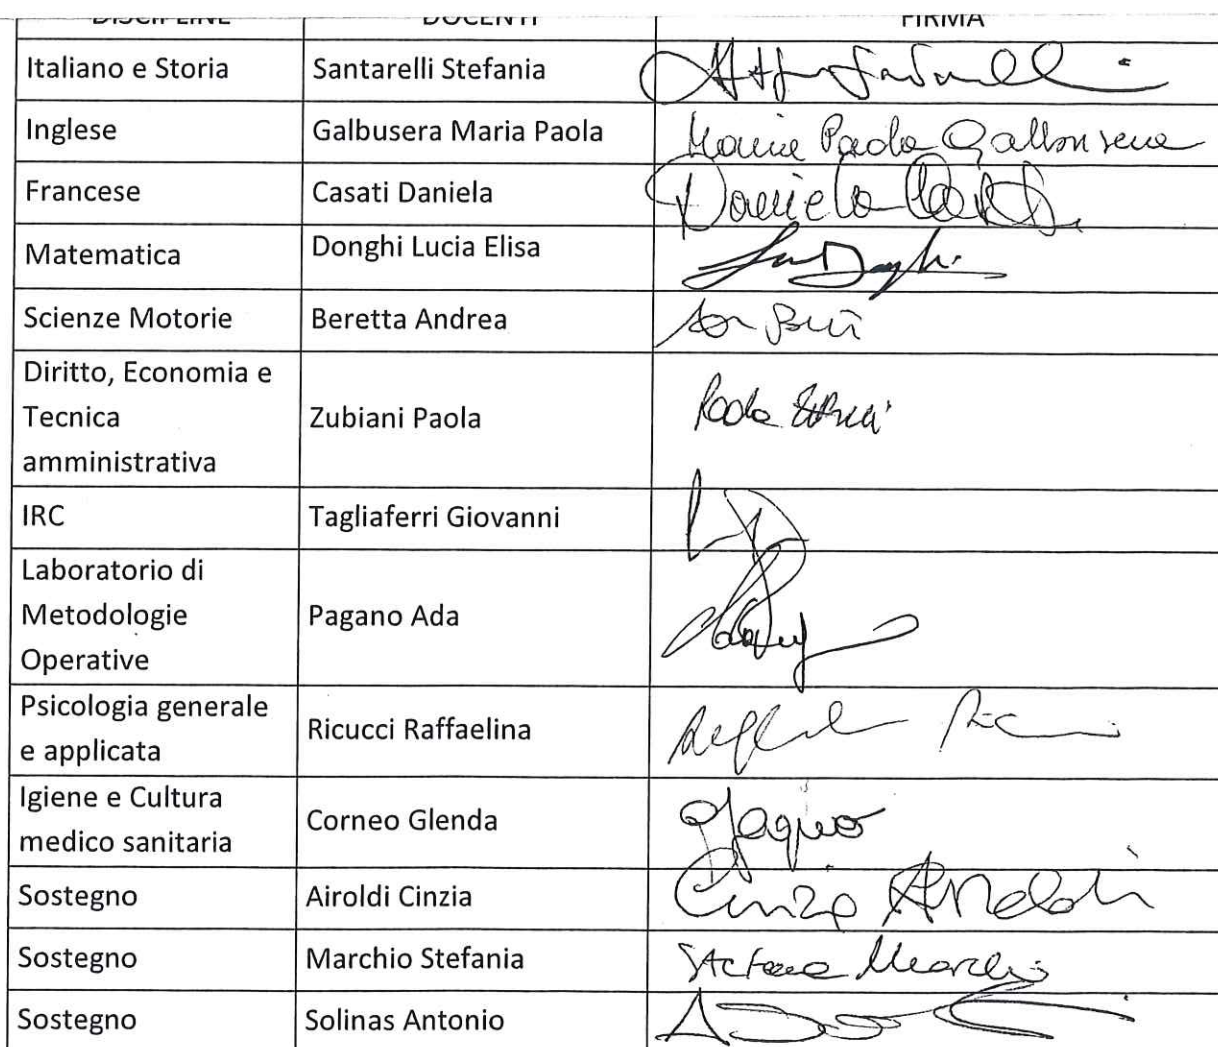 DISCIPLINE DOCENTI FIRMA
Italiano e Storia Santarelli Stefania
Inglese Galbusera Maria Paola Maria Paola Galbusera
Francese Casati Daniela Daniela Casati
Matematica Donghi Lucia Elisa
Scienze Motorie Beretta Andrea
Diritto, Economia e
Tecnica
amministrativa
Zubiani Paola Paola
IRC Tagliaferri Giovanni
Laboratorio di
Metodologie
Operative
Pagano Ada
Psicologia generale
e applicata
Ricucci Raffaelina
Igiene e Cultura
medico sanitaria
Corneo Glenda
Sostegno Airoldi Cinzia Cinzia Airoldi
Sostegno Marchio Stefania Marchio
Sostegno Solinas Antonio